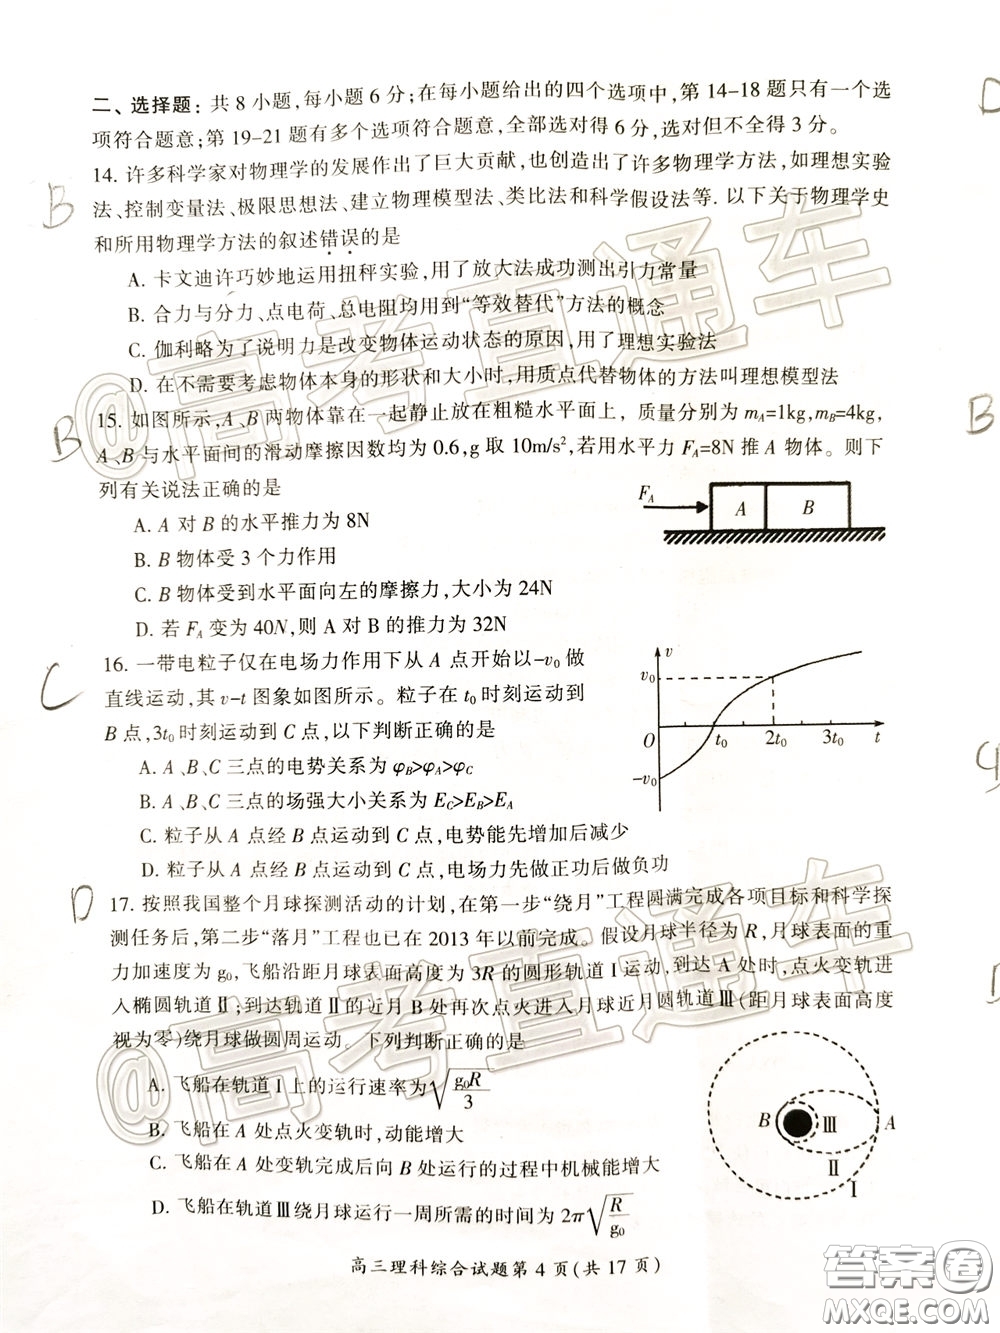 二、选择题：共 8 小题，每小题 6 分；在每小题给出的四个选项中，第 14-18 题只有一个选
项符合题意；第 19-21 题有多个选项符合题意，全部选对得 6 分，选对但不全得 3 分。
D
B
14. 许多科学家对物理学的发展作出了巨大贡献，也创造出了许多物理学方法，如理想实验
法、控制变量法、极限思想法、建立物理模型法、类比法和科学假设法等．以下关于物理学史
和所用物理学方法的叙述错误的是
A. 卡文迪许巧妙地运用扭秤实验，用了放大法成功测出引力常量
B. 合力与分力、点电荷、总电阻均用到“等效替代”方法的概念
C. 伽利略为了说明力是改变物体运动状态的原因，用了理想实验法
D. 在不需要考虑物体本身的形状和大小时，用质点代替物体的方法叫理想模型法
B
B
15. 如图所示，A、B 两物体靠在一起静止放在粗糙水平面上，质量分别为 mA=1kg,mB=4kg,
A、B 与水平面间的滑动摩擦因数均为 0.6,g 取 10m/s²,若用水平力 FA=8N 推 A 物体。则下
列有关说法正确的是
A. A 对 B 的水平推力为 8N
B. B 物体受 3 个力作用
C. B 物体受到水平面向左的摩擦力，大小为 24N
D. 若 FA 变为 40N,则 A 对 B 的推力为 32N
FA
A
B
C
16. 一带电粒子仅在电场力作用下从 A 点开始以-v0 做
直线运动，其 v-t 图象如图所示。粒子在 t0 时刻运动到
B 点，3t0 时刻运动到 C 点，以下判断正确的是
A. A、B、C 三点的电势关系为 φB>φA>φC
B. A、B、C 三点的场强大小关系为 EC>EB>EA
C. 粒子从 A 点经 B 点运动到 C 点，电势能先增加后减少
D. 粒子从 A 点经 B 点运动到 C 点，电场力先做正功后做负功
v
v0
O
t0
2t0
3t0
t
-v0
D
17. 按照我国整个月球探测活动的计划，在第一步“绕月”工程圆满完成各项目标和科学探
测任务后，第二步“落月”工程也已在 2013 年以前完成。假设月球半径为 R,月球表面的重
力加速度为 g0,飞船沿距月球表面高度为 3R 的圆形轨道 I 运动，到达 A 处时，点火变轨进
入椭圆轨道 II,到达轨道 II 的近月 B 处再次点火进入月球近月圆轨道 III(距月球表面高度
视为零)绕月球做圆周运动。下列判断正确的是
A. 飞船在轨道 I 上的运行速率为√(g0R/3)
B. 飞船在 A 处点火变轨时，动能增大
C. 飞船在 A 处变轨完成后向 B 处运行的过程中机械能增大
D. 飞船在轨道 III 绕月球运行一周所需的时间为 2π√(R/g0)
B
III
A
II
I
高三理科综合试题第 4 页(共 17 页)
@高考直通车
@高考直通车
答案圈
MXQE.COM